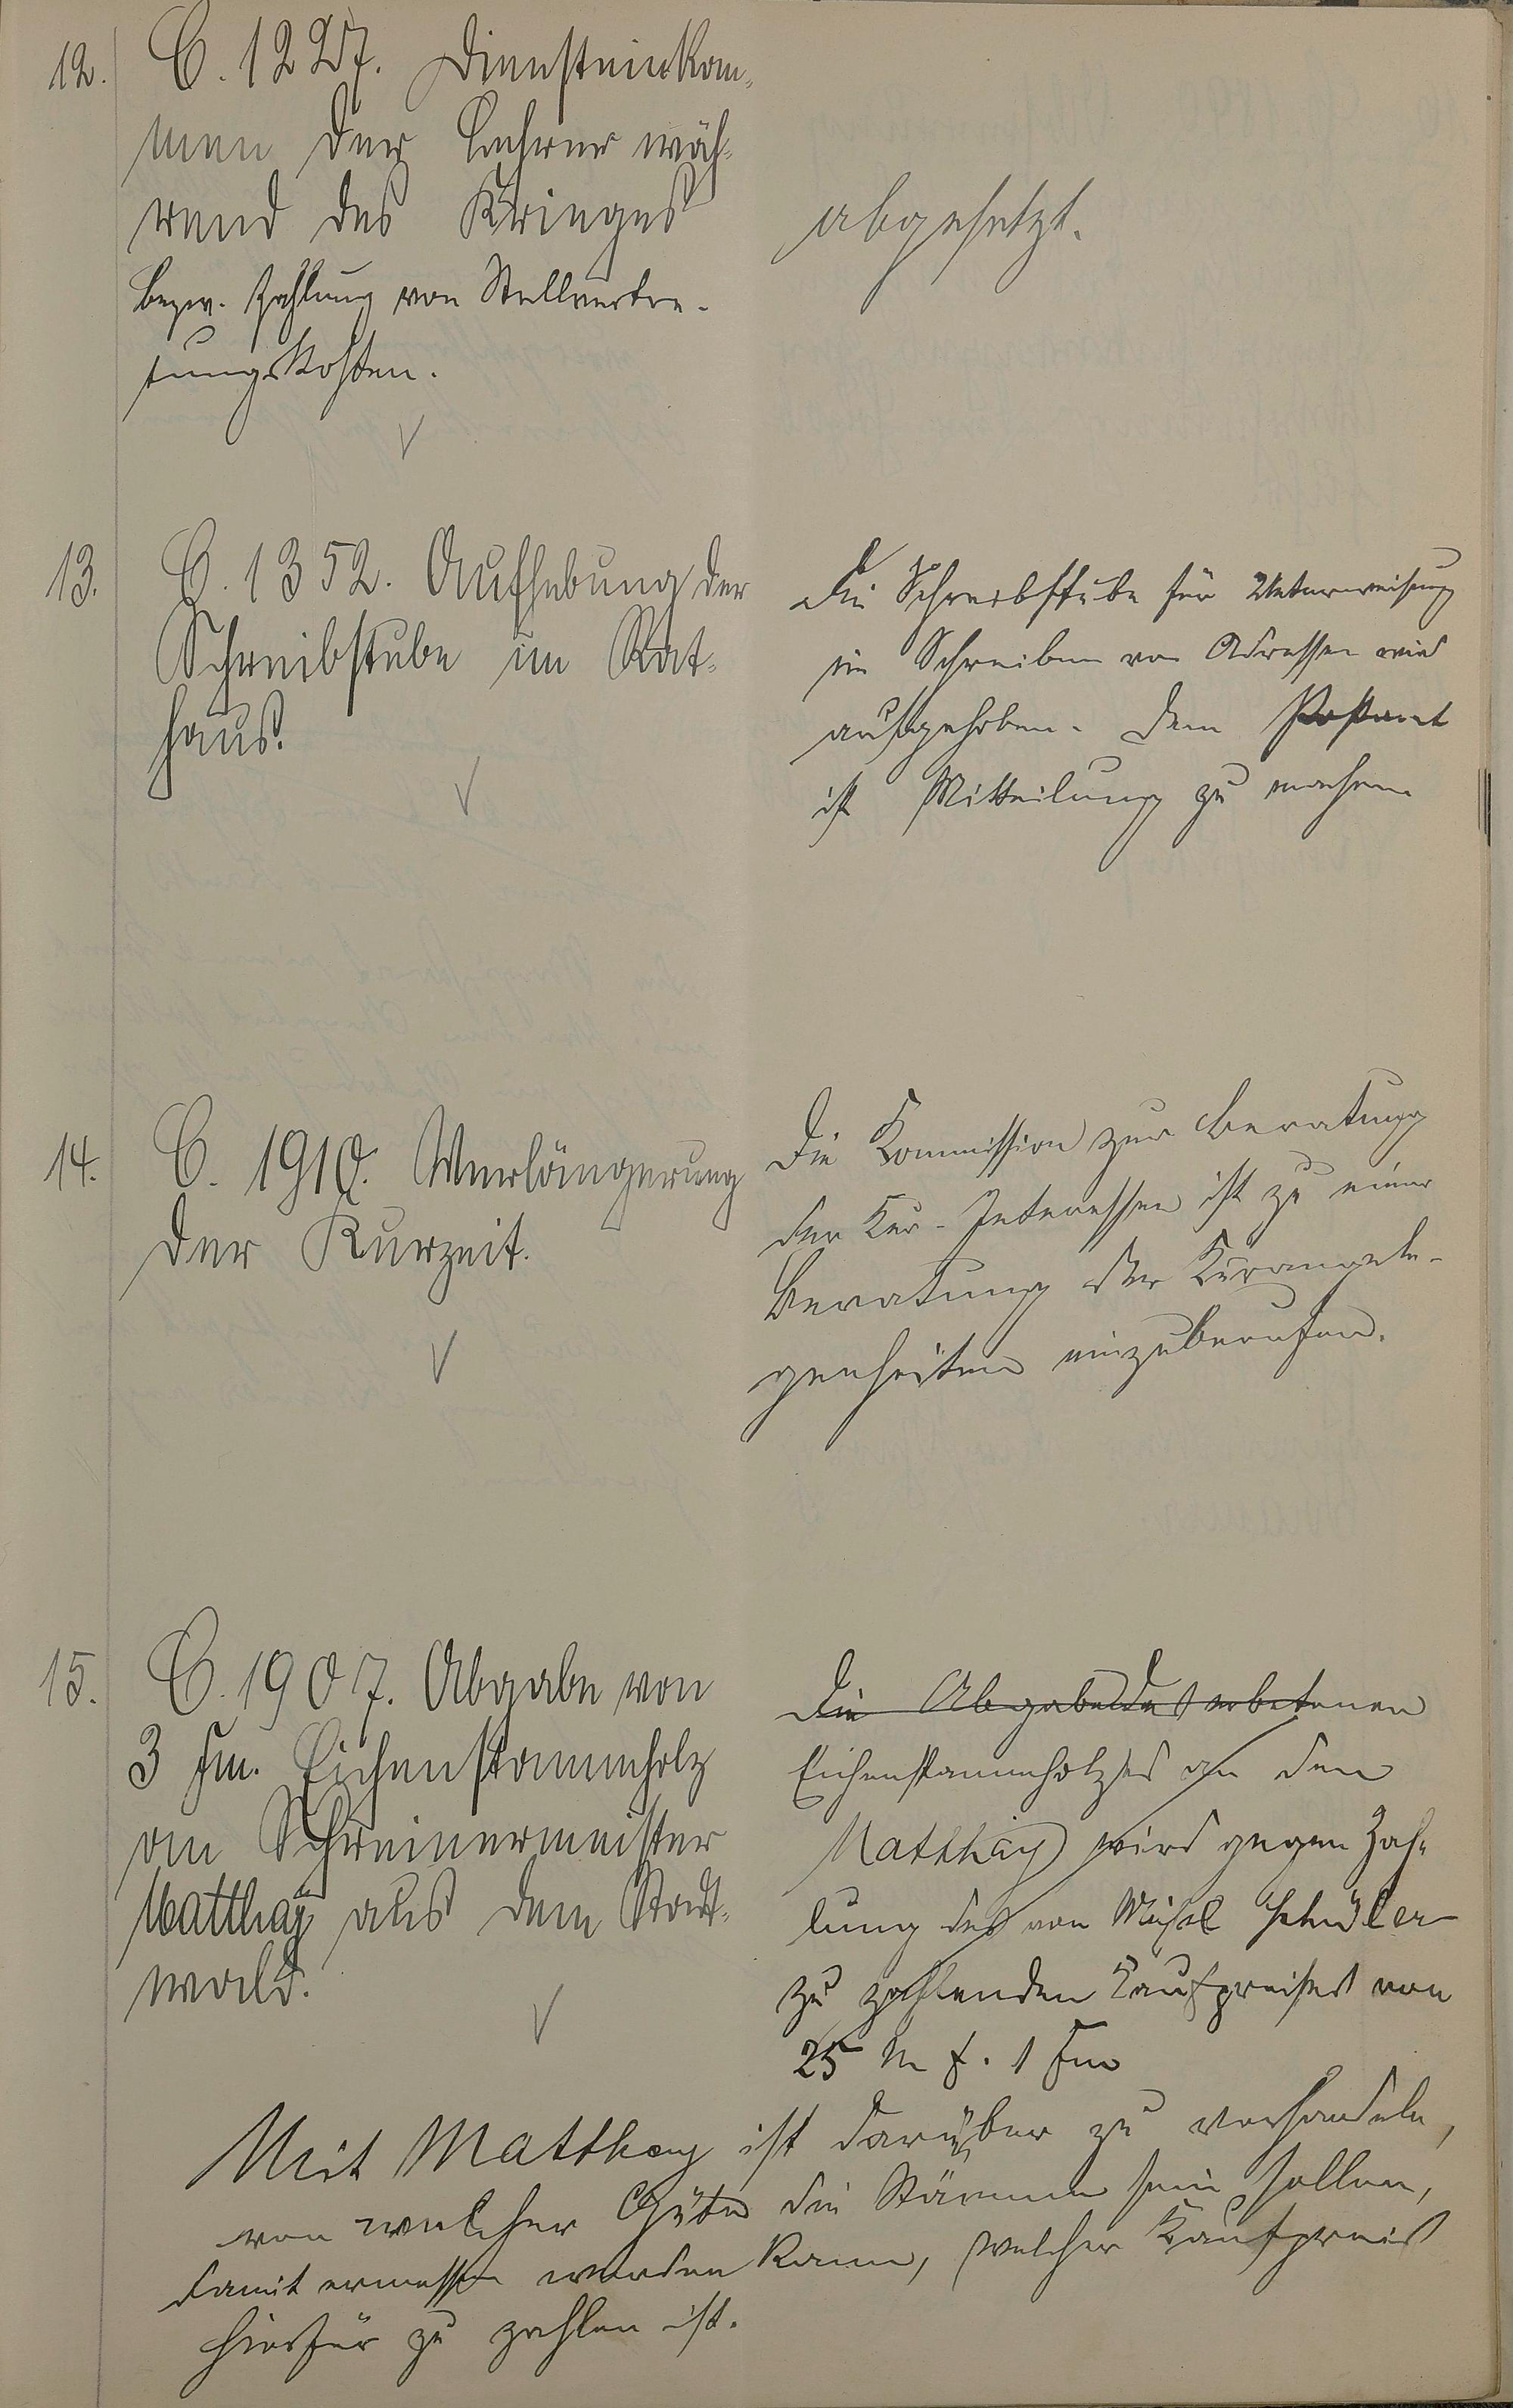 12. C. 1227. Diensteinkom-
men der Lehrer wäh-
rend des Krieges
bezw. Zahlung von Stellvertre-
tungskosten.
abgesetzt.
13. C. 1352. Aufhebung der
Schreibstube im Rat-
haus.
Die Schreibstube für Unterweisung
im Schreiben von Adressen wird
aufgehoben. Dem Postamt
ist Mitteilung zu machen
14. C. 1910. Verlängerung
der Kurzeit.
Die Kommission zur Beratung
der Kur-Interessen ist zu einer
Beratung der Kurangele-
genheiten einzuberufen.
15. C. 1907. Abgabe von
3 Fm. Eichenstammholz
an Schreinermeister
Matthäy aus dem Stadt-
wald.
Die Abgabe des erbetenen
Eichenstammholzes an den
Matthäy wird gegen Zah-
lung des von Schüler
zu zahlenden Kaufpreises von
25 M f. 1 Fm
Mit Matthäy ist darüber zu verhandeln,
von welcher Güte die Stämme sein sollen,
damit ermessen werden kann, welcher Kaufpreis
hierfür zu zahlen ist.